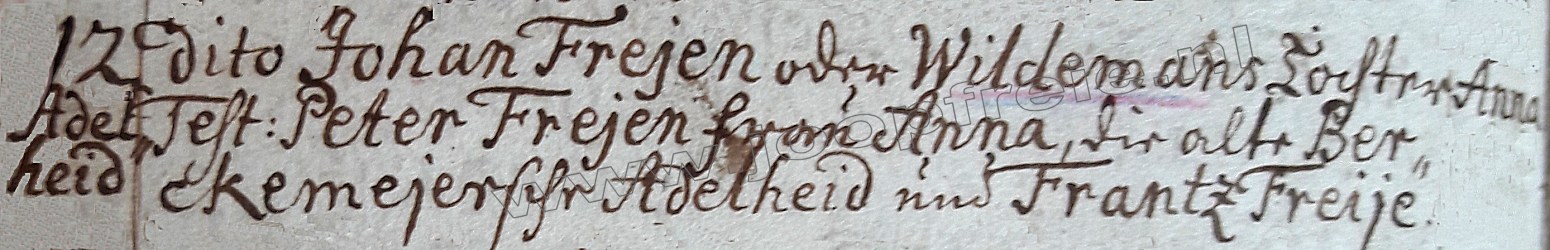 12 dito Johan Frejen oder Wildemans Tochter Anna
Adel, Test: Peter Frejen fran Anna, die alte Ber„
heid" ckemejersche Adelheid und Frantz Freije.